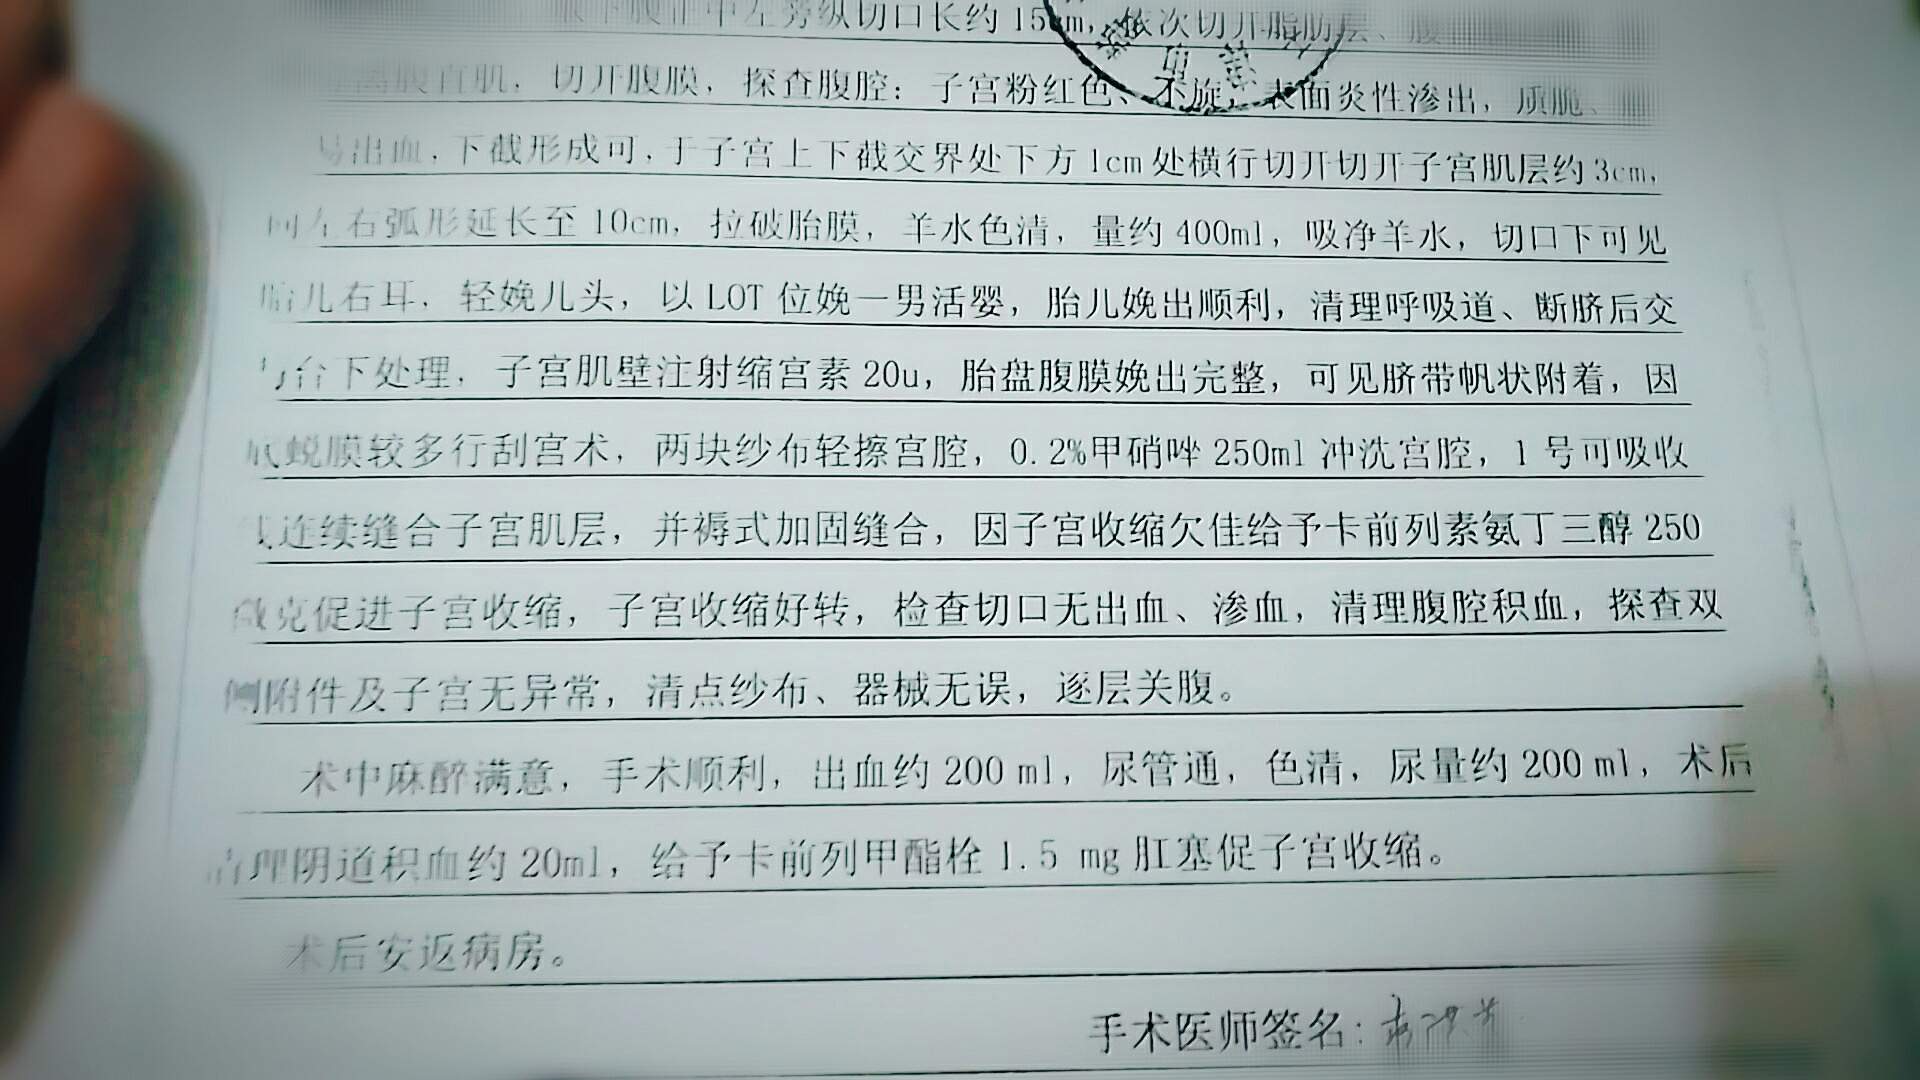 取下腹正中左旁纵切口长约15cm，依次切开脂肪层、腹
离腹直肌，切开腹膜，探查腹腔：子宫粉红色、不旋，表面炎性渗出，质脆、
易出血，下截形成可，于子宫上下截交界处下方1cm处横行切开切开子宫肌层约3cm，
向左右弧形延长至10cm，拉破胎膜，羊水色清，量约400ml，吸净羊水，切口下可见
胎儿右耳，轻娩儿头，以LOT位娩一男活婴，胎儿娩出顺利，清理呼吸道、断脐后交
与台下处理，子宫肌壁注射缩宫素20u，胎盘腹膜娩出完整，可见脐带帆状附着，因
蜕膜较多行刮宫术，两块纱布轻擦宫腔，0.2%甲硝唑250ml冲洗宫腔，1号可吸收
线连续缝合子宫肌层，并褥式加固缝合，因子宫收缩欠佳给予卡前列素氨丁三醇250
微克促进子宫收缩，子宫收缩好转，检查切口无出血、渗血，清理腹腔积血，探查双
侧附件及子宫无异常，清点纱布、器械无误，逐层关腹。
术中麻醉满意，手术顺利，出血约200 ml，尿管通，色清，尿量约200 ml，术后
清理阴道积血约20ml，给予卡前列甲酯栓1.5 mg肛塞促子宫收缩。
术后安返病房。
手术医师签名：